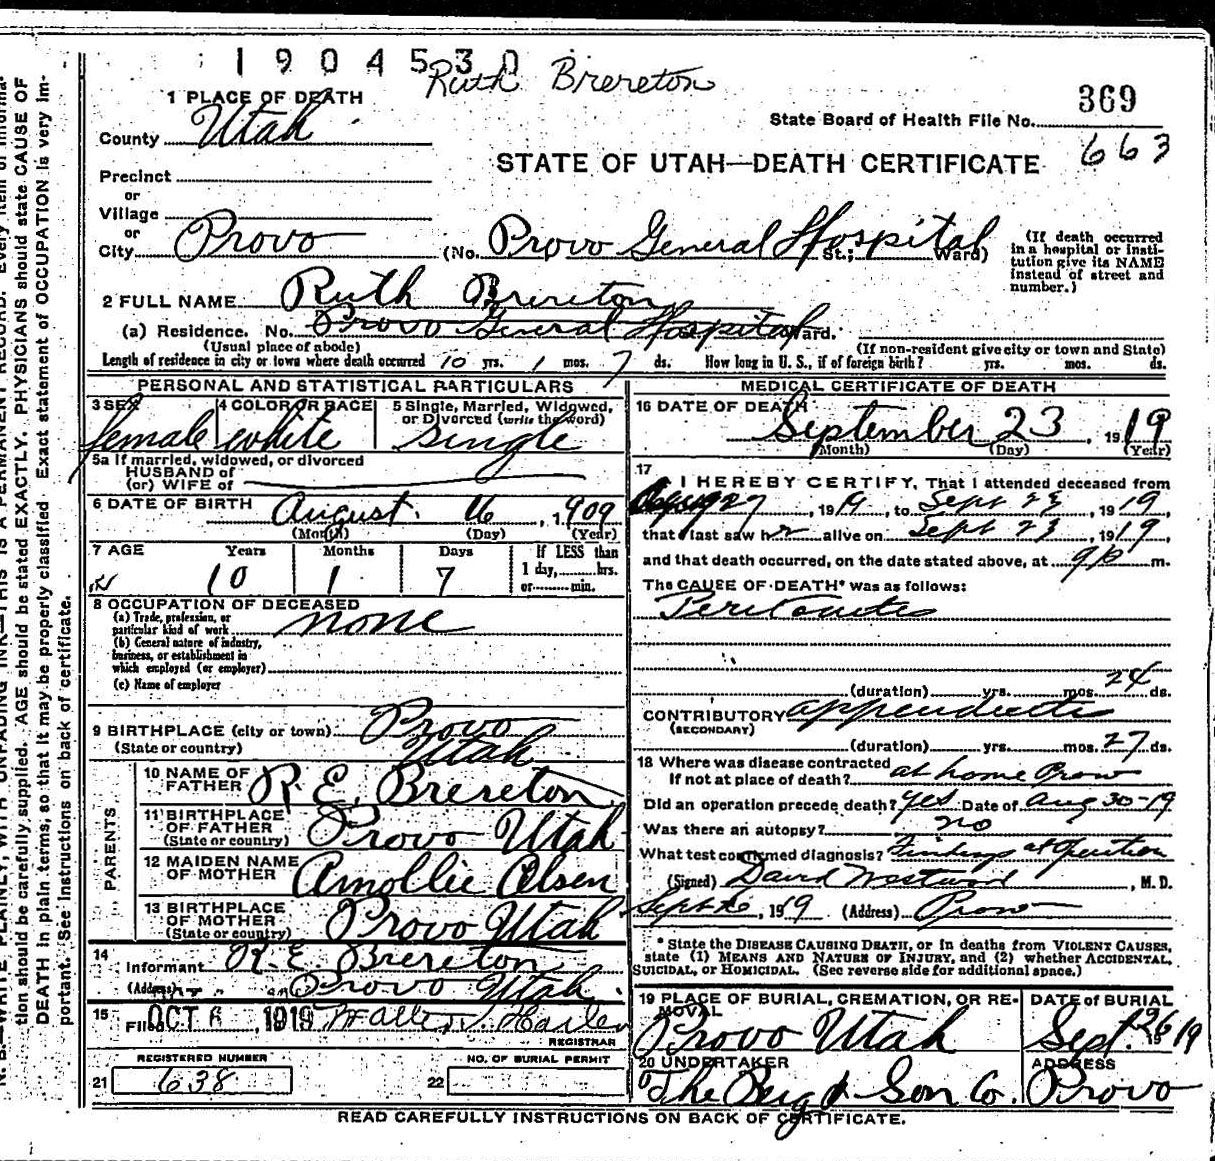 1904530
Ruth Brereton
1 PLACE OF DEATH
369
County Utah
State Board of Health File No.
663
STATE OF UTAH—DEATH CERTIFICATE
Precinct
or
Village
or
City Provo (No. Provo General Hospital St.; Ward)
(If death occurred in a hospital or institution give its NAME instead of street and number.)
2 FULL NAME Ruth Brereton
(a) Residence. No. Provo General Hospital Ward.
(Usual place of abode) (If non-resident give city or town and State)
Length of residence in city or town where death occurred 10 yrs. 1 mos. 7 ds. How long in U. S., if of foreign birth? yrs. mos. ds.
PERSONAL AND STATISTICAL PARTICULARS
3 SEX female
4 COLOR OR RACE white
5 Single, Married, Widowed, or Divorced (write the word) single
5a If married, widowed, or divorced
HUSBAND of
(or) WIFE of
6 DATE OF BIRTH August 16, 1909
(Month) (Day) (Year)
7 AGE Years Months Days If LESS than
1 day, hrs.
or min.
10 1 7
8 OCCUPATION OF DECEASED
(a) Trade, profession, or
particular kind of work none
(b) General nature of industry,
business, or establishment in
which employed (or employer)
(c) Name of employer
9 BIRTHPLACE (city or town) Provo
(State or country) Utah
PARENTS
10 NAME OF FATHER R. E. Brereton
11 BIRTHPLACE OF FATHER Provo Utah
(State or country)
12 MAIDEN NAME OF MOTHER Amollie Olsen
13 BIRTHPLACE OF MOTHER Provo Utah
(State or country)
14 Informant R. E. Brereton
(Address) Provo Utah
15 Filed OCT 6, 1919
REGISTRAR
REGISTERED NUMBER
21 638
NO. OF BURIAL PERMIT
22
MEDICAL CERTIFICATE OF DEATH
16 DATE OF DEATH September 23, 1919
(Month) (Day) (Year)
17 I HEREBY CERTIFY, That I attended deceased from
27, 1919, to Sept 23, 1919,
that I last saw her alive on Sept 23, 1919,
and that death occurred, on the date stated above, at 9 p m.
The CAUSE OF DEATH* was as follows:
Peritonitis
(duration) yrs. mos. 24 ds.
CONTRIBUTORY appendicitis
(SECONDARY)
(duration) yrs. mos. 27 ds.
18 Where was disease contracted
If not at place of death? at home Provo
Did an operation precede death? yes Date of Aug 30-19
Was there an autopsy? no
What test confirmed diagnosis? Findings at Operation
(Signed) David Westwood, M. D.
1919 (Address) Provo
* State the DISEASE CAUSING DEATH, or in deaths from VIOLENT CAUSES,
state (1) MEANS AND NATURE OF INJURY, and (2) whether ACCIDENTAL,
SUICIDAL, or HOMICIDAL. (See reverse side for additional space.)
19 PLACE OF BURIAL, CREMATION, OR REMOVAL Provo Utah
DATE of BURIAL Sept. 26 1919
20 UNDERTAKER The Berg & Son Co.
ADDRESS Provo
READ CAREFULLY INSTRUCTIONS ON BACK OF CERTIFICATE.
N. B.—WRITE PLAINLY, WITH UNFADING INK—THIS IS A PERMANENT RECORD. Every item of informa-
tion should be carefully supplied. AGE should be stated EXACTLY. PHYSICIANS should state CAUSE OF
DEATH in plain terms, so that it may be properly classified. Exact statement of OCCUPATION is very im-
portant. See instructions on back of certificate.